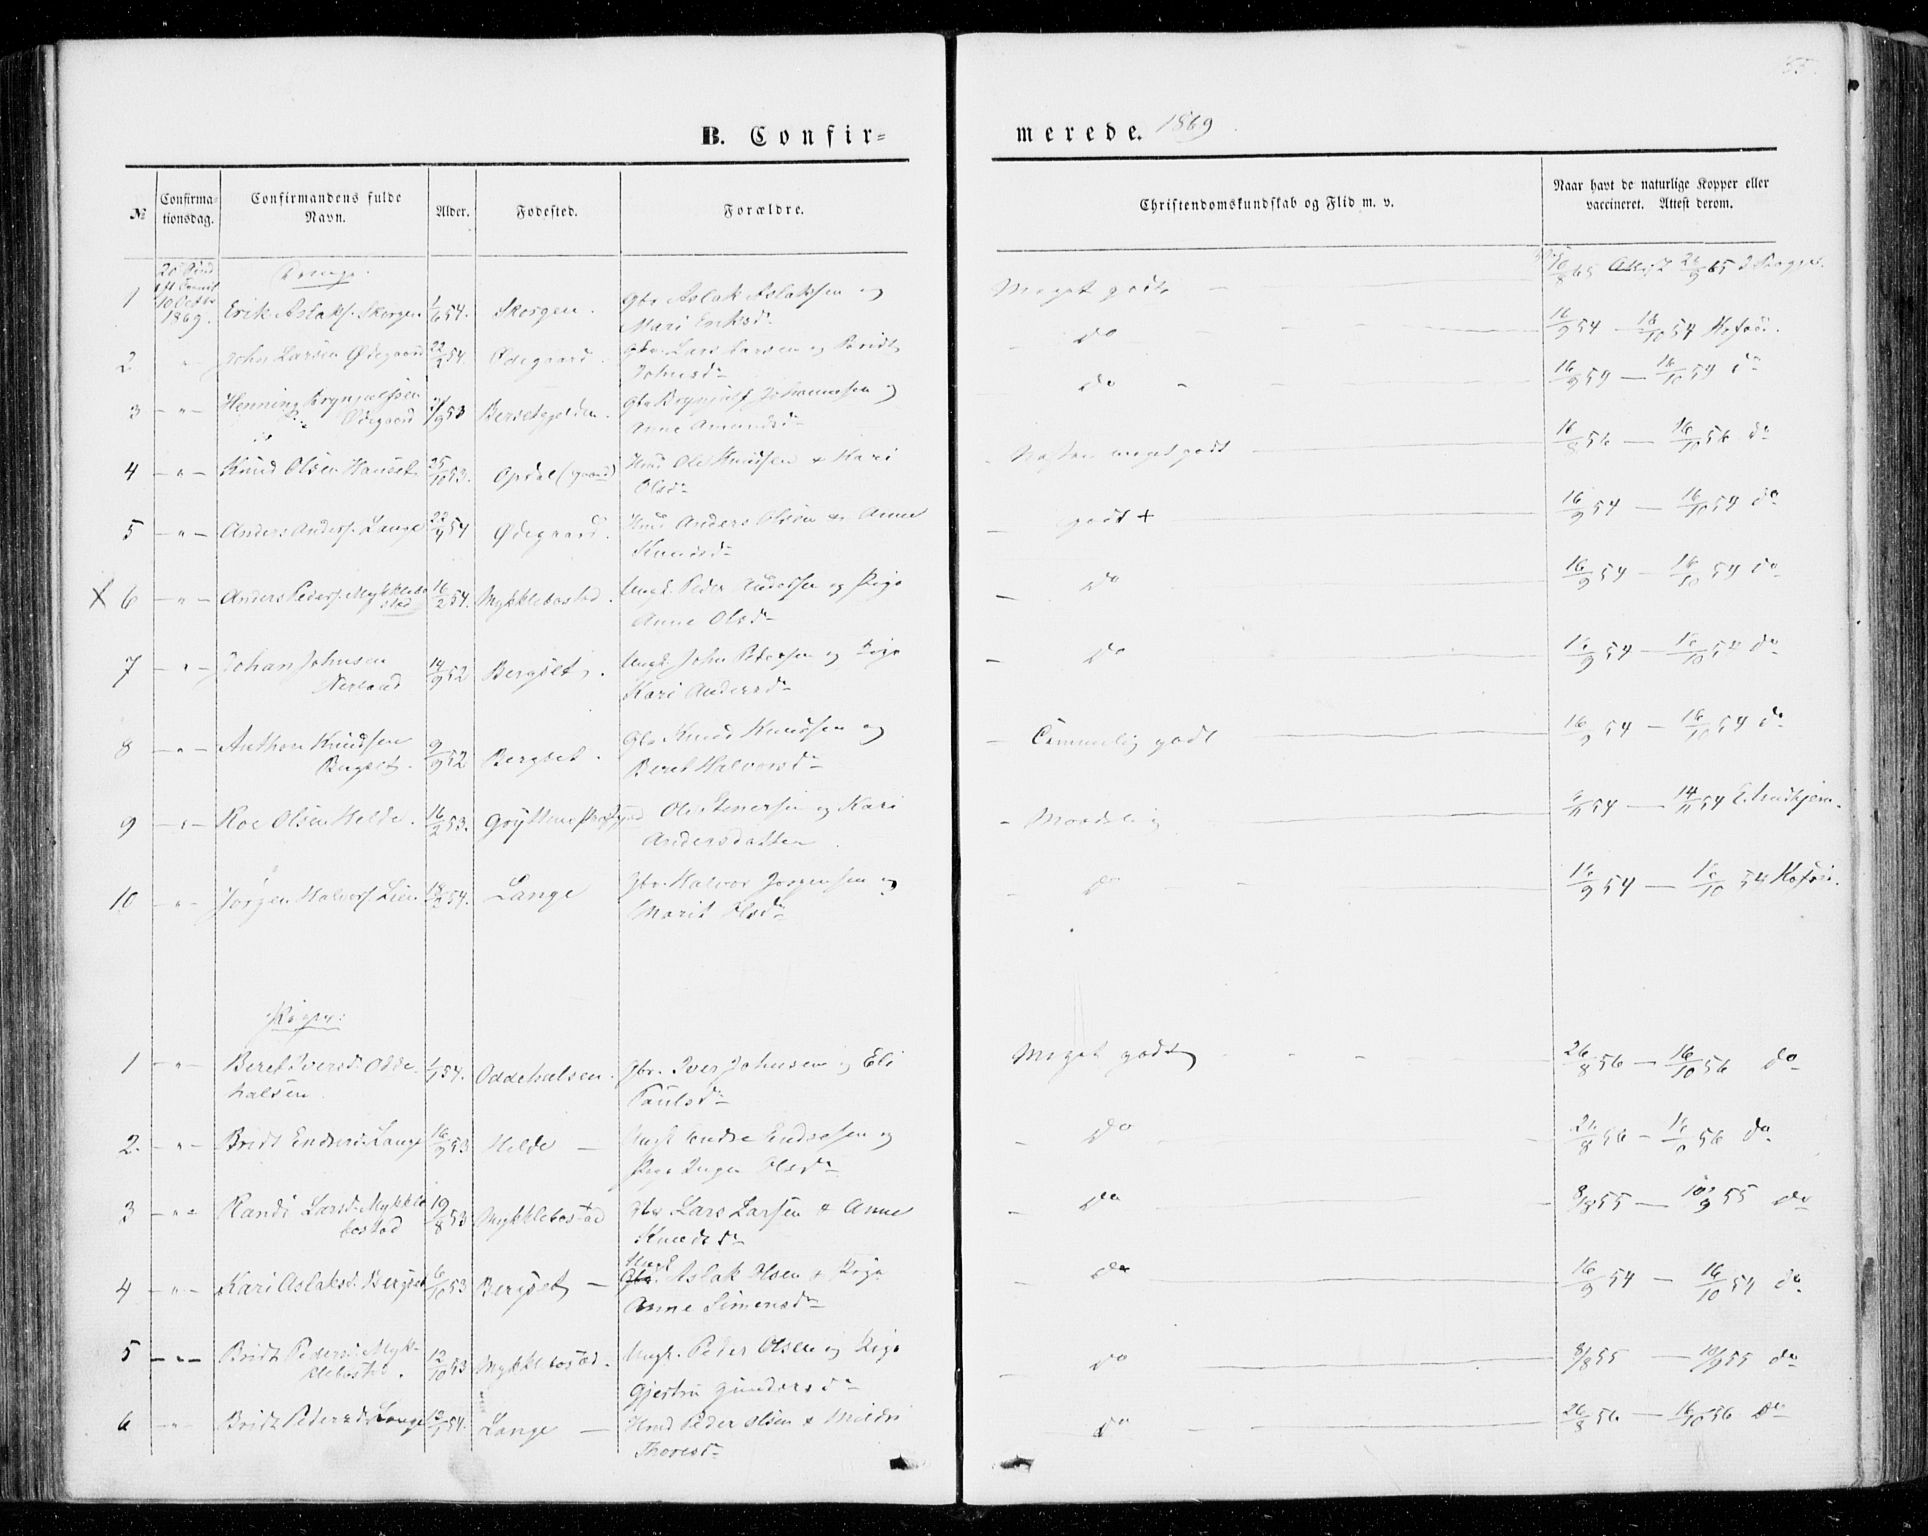 B. Confir=
merede. 1869
№
Confirma-
tionsdag.
Confirmandens fulde
Navn.
Alder.
Fodested.
Forældre.
Christendomskundskab og Flid m. v.
Naar havt de naturlige Kopper eller
vaccineret. Attest derom.
Drenge.
10 Octbr
1869.
1 Erik Aslaks. Skorgen 1/6 54. Skorgen. Gbr Aslak Aslaksen og
Mari Eriksd. Meget godt
2 " John Larsen Ødegaard 22/2 54. Ødegaard. Gbr. Lars Larsen og Bridt
Johnsd. do 16/9 54 — 18/10 54 Kofoed.
3 - " - Henning Brynjulfsen
Ødegaard 53 Bersetgjelden. Gbr Brynjulf Johannesen og
Anne Amundsd. do 16/9 54 — 16/10 54 do
4 - " - Knud Olsen Hauset 25/10 53. Opdal (gaard) Huus Ole Knudsen & Kari
Olsd. Næsten meget godt 16/8 56 — 16/10 56 do
5 - " - Anders Anders. Lange 22/4 54 Ødegaard. Huus Anders Olsen & Anne
Knudsd. godt + 16/9 54 — 16/10 54 do
X 6 - " - Anders Peders. Myklebo
stad 16/2 54. Myklebostad. Ungk. Peder Knudsen og Pige
Anne Olsd. do 16/9 54 — 16/10 54 do
7 - " - Johan Johnsen
Nerland 14/9 52 Bergset. Ungk. John Pedersen og Pige
Kari Andersd. do 16/9 54 — 16/10 54 do
8 - " - Anthon Knudsen
Bergset. 9/9 52 Bergset. Gbr Knud Knudsen og
Beret Halvorsd. Temmelig godt 16/9 54 — 16/10 54 do
9 - " - Roe Olsen Helde. 16/2 53. Gryttens Præstgjeld Ole Steinersen og Kari
Andersdatter. Maadelig /11 54 — 14/11 54
10 - " - Jørgen Halvors. Lien 54. Lange Gbr. Halvor Jørgensen og
Marit Olsd. do 16/9 54 — 16/10 54 Kofoed.
Piger:
1 - " - Beret Iversd. Odde
halsen. 1/1 54. Oddehalsen. Gbr. Iver Johnsen og Eli
Paulsd. Meget godt 26/8 56 — 16/10 56 do
2. - " - Bridt Endresd. Lange 16/9 53 Helde — Ungk Endre Endresen og
Pige Inger Olsd. do 26/8 56 — 16/10 56 do
3 - " - Randi Larsd. Mykle
bostad 19/8 53 Myklebostad Gbr Lars Larsen & Anne
Knudsd. do 8/8 55 — 10/9 55 do
4 - " - Kari Aslaksd. Bergset 6/10 53 Bergset — Ungk
Gbr. Aslak Olsen & Pige
Anne Simensd. do 16/9 54 — 16/10 54 do
5 - " - Bridt Pedersd. Myk-
klebostad. 12/10 53 Myklebostad. Ungk. Peder Olsen og Pige
Gjertru Gundersd. do 8/8 55 — 10/9 55 do
6 - " - Bridt Pedersd. Lange 12/1 54. Lange — Huus Peder Olsen & Mildri
Thoresd. do 26/8 56 — 16/10 56 do